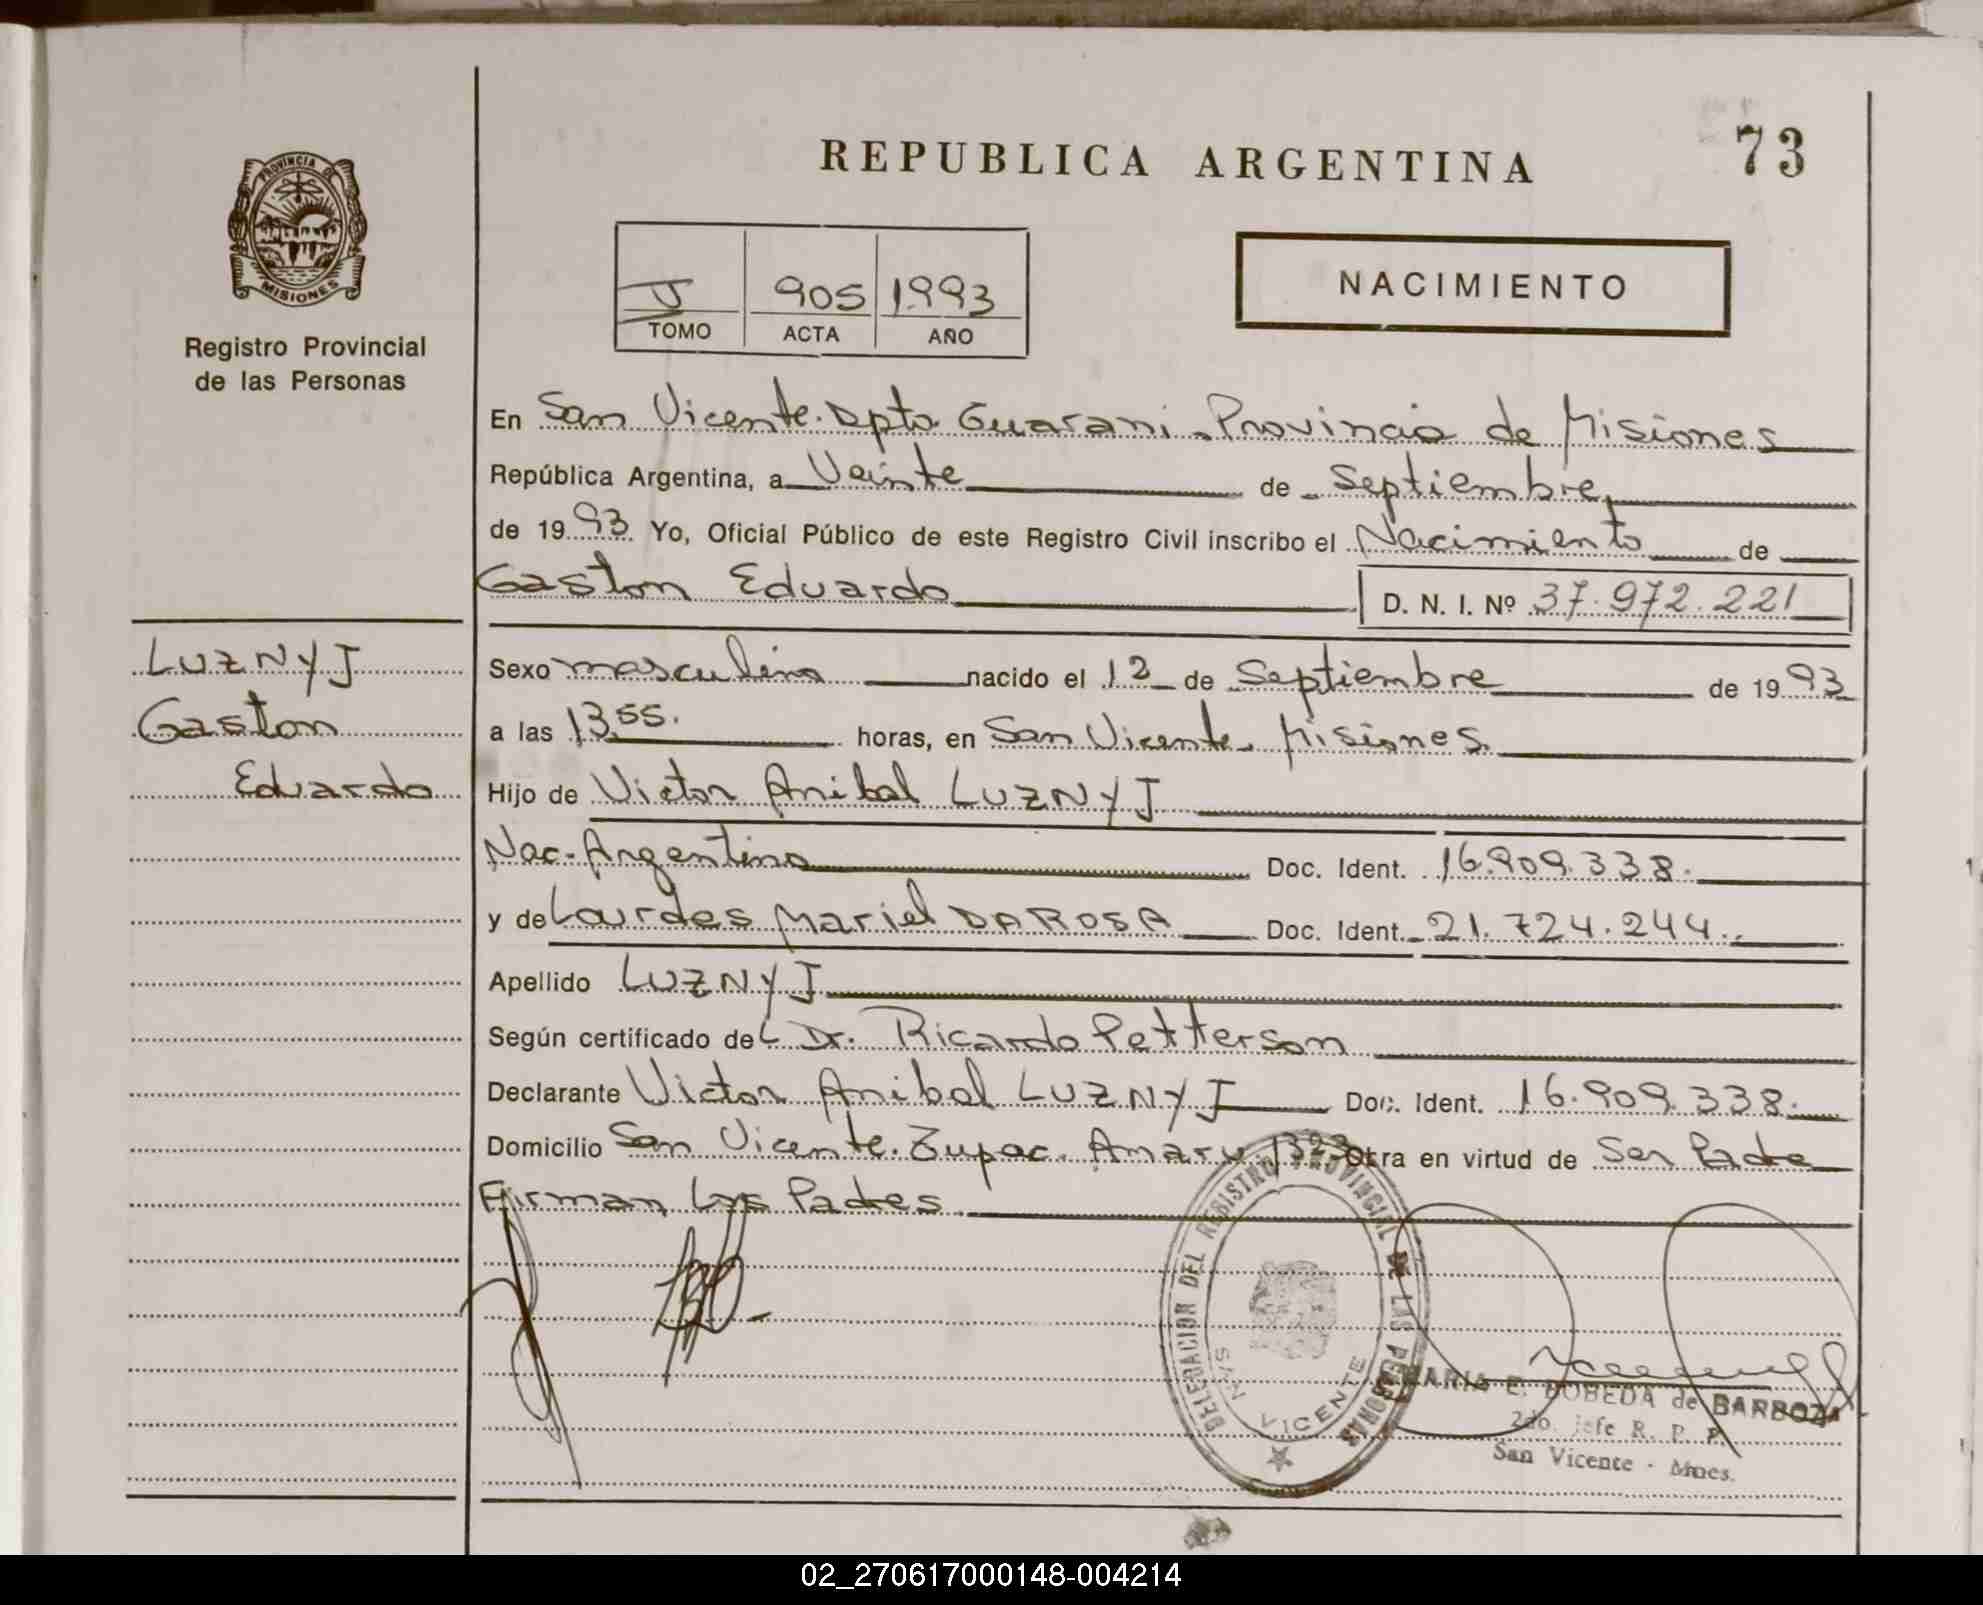 73
REPUBLICA ARGENTINA
PROVINCIA DE
MISIONES
Registro Provincial
de las Personas
905 1993
TOMO ACTA AÑO
NACIMIENTO
En San Vicente. Dpto. Guarani. Provincia de Misiones
República Argentina, a Veinte de Septiembre,
de 1993. Yo, Oficial Público de este Registro Civil inscribo el Nacimiento de
Gaston Eduardo D. N. I. Nº 37.972.221
LUZNYJ
Gaston
Eduardo
Sexo masculino nacido el de Septiembre de 1993
a las 13,55. horas, en San Vicente. Misiones.
Hijo de Victor Anibal LUZNYJ
Nac. Argentina Doc. Ident. 16.909.338.
y de Lourdes Mariel DA ROSA Doc. Ident. 21.724.244.
Apellido LUZNYJ
Según certificado del Dr. Ricardo Petterson
Declarante Victor Anibal LUZNYJ Doc. Ident. 16.909.338.
Domicilio San Vicente. Tupac. Amaru 1323 Otra en virtud de Ser Padre
Firman Los Padres.
DELEGACION DEL REGISTRO PROVINCIAL DE LAS PERSONAS
SAN VICENTE
MARIA E. BOBEDA de BARBOZA
2do. jefe R. P. P.
San Vicente - Mnes.
02_270617000148-004214